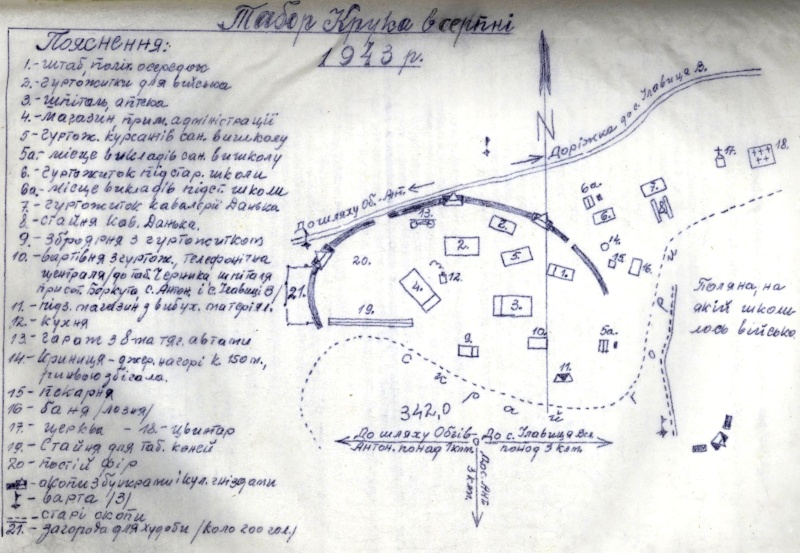 Табор Крука в серпні
1943 р.
Пояснення:
1.- штаб політ. осередок
2.- гуртожитки для війська
3.- шпіталь, аптека
4.- магазин прим. адміністрації
5- гуртож. курсантів сан. вишколу
5а- місце викладів сан. вишколу
6. гуртожиток підстар. школи
6а- місце викладів підст. школи
7- гуртожиток кавалерії Данька
8- стайня Кав. Данька.
9- Збройрня з гуртожитком
10- вартівня з гуртож., телефонічна
централя /до таб. Черника, шпіталя
прист. Боркута с. Антон. і с. Ілавиці В/
11- підз. магазин з вибух. матеріял.
12- кухня
13- гараж з 8-ма тяг. автами
14- Криниця - джер. на горі к. 150 м.,
ринвою збігала.
15- пекарня
16- баня /лозня/
17- церква - 18- цвинтар
19- Стайня для таб. коней
20- постій фір
- окопи з бункрами і кул. гніздами
- варта /3/
- старі окопи
21.- загорода для худоби /коло 200 гол./
N
Доріжка до с. Ілавиця В.
До шляху Об. Ант.
17.
18.
7.
6а.
6.
14.
15
16.
13.
2.
2.
5.
1.
20.
4.
12.
3.
21.
19.
9.
10.
5а.
11.
Поляна, на
якій школи
лось військо.
С т а р и й
342,0
До шляху Обгів
Антон. понад 7 км.
До с. Ілавиця Вел.
понад 3 клм.
3 клм.